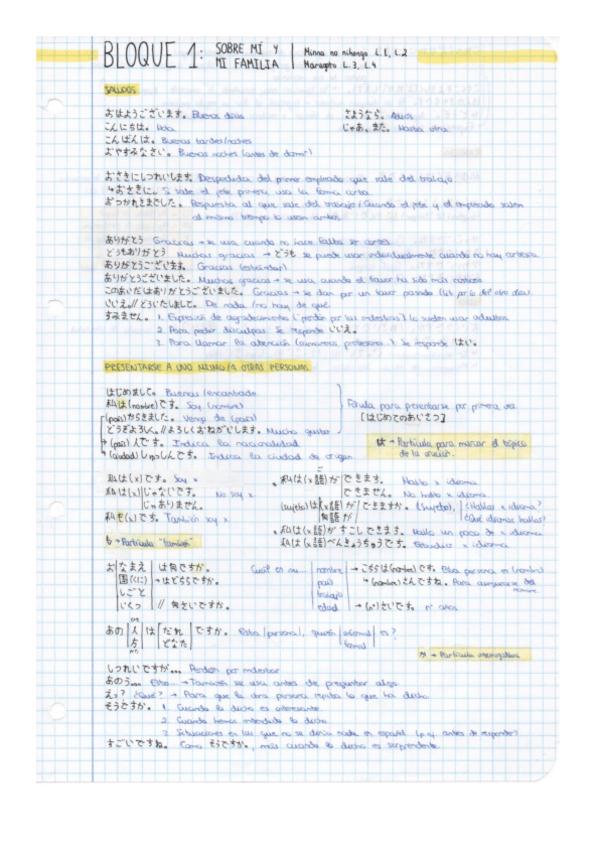 BLOQUE 1: SOBRE MÍ Y MI FAMILIA | Minna no nihongo L.1, L.2
Marugoto L.3, L.4
SALUDOS
おはようございます。 Buenos días
さようなら。 Adiós
こんにちは。 Hola
じゃあ、また。 Hasta otra
こんばんは。 Buenas tardes/noches
おやすみなさい。 Buenas noches (antes de dormir)
おさきにしつれいします。 Despedida del primer empleado que sale del trabajo.
↳おさきに。 Si sale el jefe primero usa la forma corta
おつかれさまでした。 Respuesta al que sale del trabajo / Cuando el jefe y el empleado salen
al mismo tiempo lo usan ambos
ありがとう Gracias → se usa cuando no hace falta ser cortés
どうもありがとう Muchas gracias → どうも se puede usar individualmente cuando no hay cortesía
ありがとうございます。 Gracias (estándar)
ありがとうございました。 Muchas gracias → se usa cuando el favor ha sido más
このあいだはありがとうございました。 Gracias → se dan por un favor pasado
いいえ。// どういたしまして。 De nada / no hay de qué
すみません。 1. Expresión de agradecimiento ("perdón por las molestias") lo suelen usar adultos
2. Para pedir disculpas. Se responde いいえ。
3. Para llamar la atención (camareros, profesores...). Se responde はい。
PRESENTARSE A UNO MISMO/A OTRAS PERSONAS
はじめまして。 Buenas / encantado
私は(nombre)です。 Soy (nombre)
(país)からきました。 Vengo de (país)
どうぞよろしく。// よろしくおねがいします。 Mucho gusto
(país)人です。 Indica la nacionalidad
(ciudad)しゅっしんです。 Indica la ciudad de origen
Fórmula para presentarse por primera vez
[はじめてのあいさつ]
は → Partícula para marcar el tópico
de la oración.
私は(x)です。 Soy x
私は(x) じゃないです。 No soy x
じゃありません。
私も(x)です。 También soy x
も → Partícula "también"
私は(x語)ができます。 Hablo x idioma
できません。 No hablo x idioma
(sujeto)は(x語)ができますか。 (sujeto), ¿Hablas x idioma?
何語が ¿Qué idiomas hablas?
私は(x語)がすこしできます。 Hablo un poco de x idioma
私は(x語)べんきょうちゅうです。 Estudio x idioma
おなまえ は何ですか。 Cuál es su... nombre → こちらは(nombre)です。 Esta persona es (nombre)
国(くに) → はどちらですか。 país → (nombre)さんですね。 Para asegurarse del nombre
しごと trabajo
いくつ // 何さいですか。 edad → (nº)さいです。 nº años
あの 人 は だれ ですか。 Esta (persona), quién es?
方 どなた formal
か → Partícula interrogativa
しつれいですが... Perdón por molestar
あのう... Esto... → También se usa antes de preguntar algo
えっ? ¿Qué? → Para que la otra persona repita lo que ha dicho
そうですか。 1. Cuando lo dicho es interesante
2. Cuando hemos entendido lo dicho
3. Situaciones en las que no se diría nada en español (p.ej. antes de responder)
すごいですね。 Como そうですか, más cuando lo dicho es sorprendente.